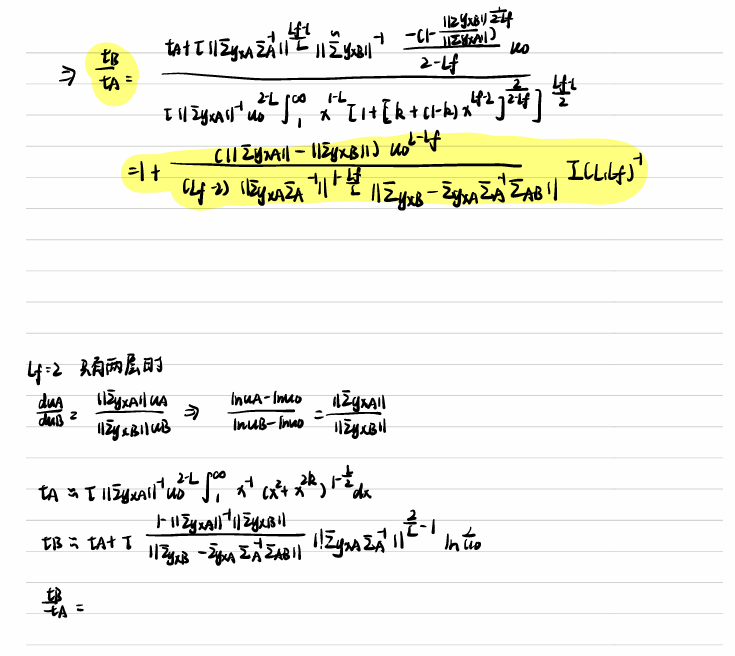 ⇒ tB/tA = (tA + τ ||ΣyxA ΣA^-1||^((Lf-L)/L) ||Σ̃yxB||^-1 (-(1-(||ΣyxB||/||ΣyxA||)^(1/(2-Lf))))/(2-Lf) u0) / (τ ||ΣyxA||^-1 u0^(2-L) ∫_1^∞ x^(1-L) [1+[k+(1-k)x^(Lf-2)]^(2/(2-Lf))]^((Lf-L)/2))
=1+ ((||ΣyxA|| - ||ΣyxB||) u0^(L-Lf)) / ((Lf-2) ||ΣyxA ΣA^-1||^(1-Lf/L) ||ΣyxB - ΣyxA ΣA^-1 ΣAB||) I(L,Lf)^-1
Lf=2 只有两层时
duA/duB = ||ΣyxA||uA / ||ΣyxB||uB ⇒ (lnuA-lnu0)/(lnuB-lnu0) = ||ΣyxA||/||ΣyxB||
tA ≈ τ ||ΣyxA||^-1 u0^(2-L) ∫_1^∞ x^-1 (x^2+x^2k)^(1-L/2) dx
tB ≈ tA + τ (1-||ΣyxA||^-1||ΣyxB||)/||ΣyxB - ΣyxA ΣA^-1 ΣAB|| ||ΣyxA ΣA^-1||^(2/L-1) ln 1/u0
tB/tA =